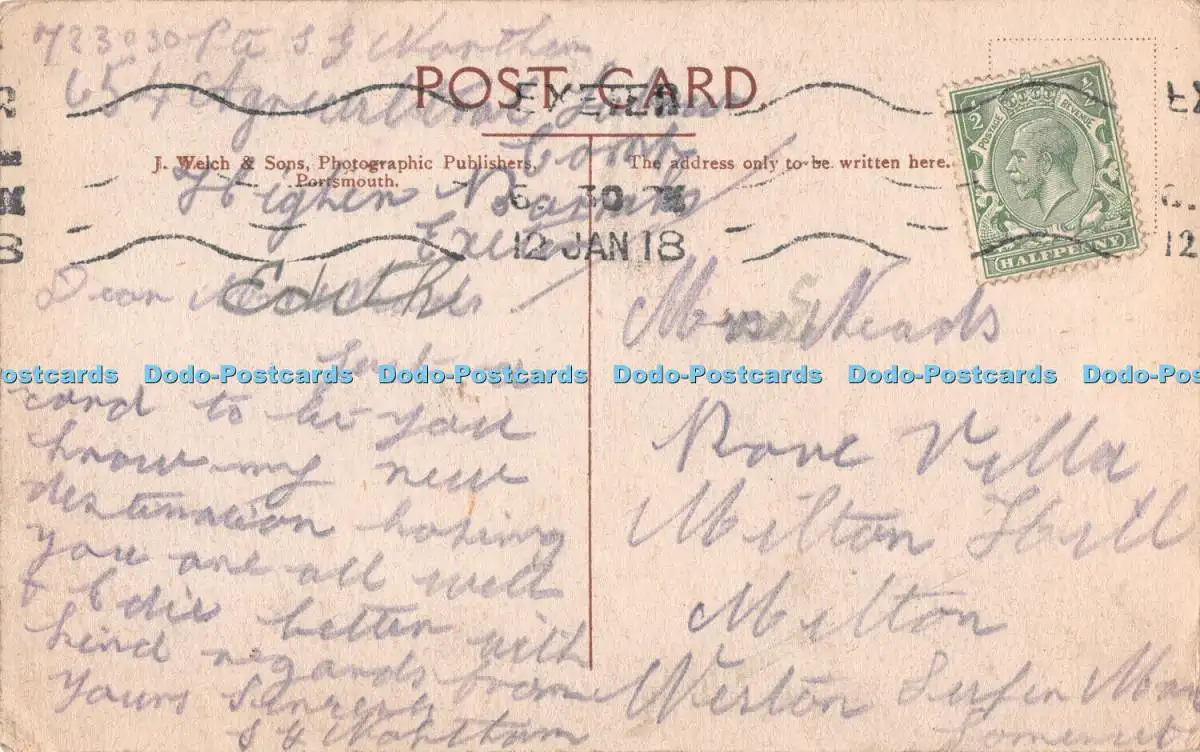 723030 Pte S G Northam
654 Agricultural
POST CARD.
EXETER
6. 30
12 JAN 18
J. Welch & Sons, Photographic Publishers,
Portsmouth.
The address only to be written here.
Higher Barracks
Exeter
Dear
Edith
card to let you
know my new
destination hoping
you are all well
& Edie better with
kind regards from
Yours
S G Northam
HALFPENNY
POSTAGE
REVENUE
1/2
1/2
Mrs Meads
Rove Villa
Milton Hill
Milton
Weston Super Mare
Somerset
Dodo-Postcards Dodo-Postcards Dodo-Postcards Dodo-Postcards Dodo-Postcards Dodo-Postcards